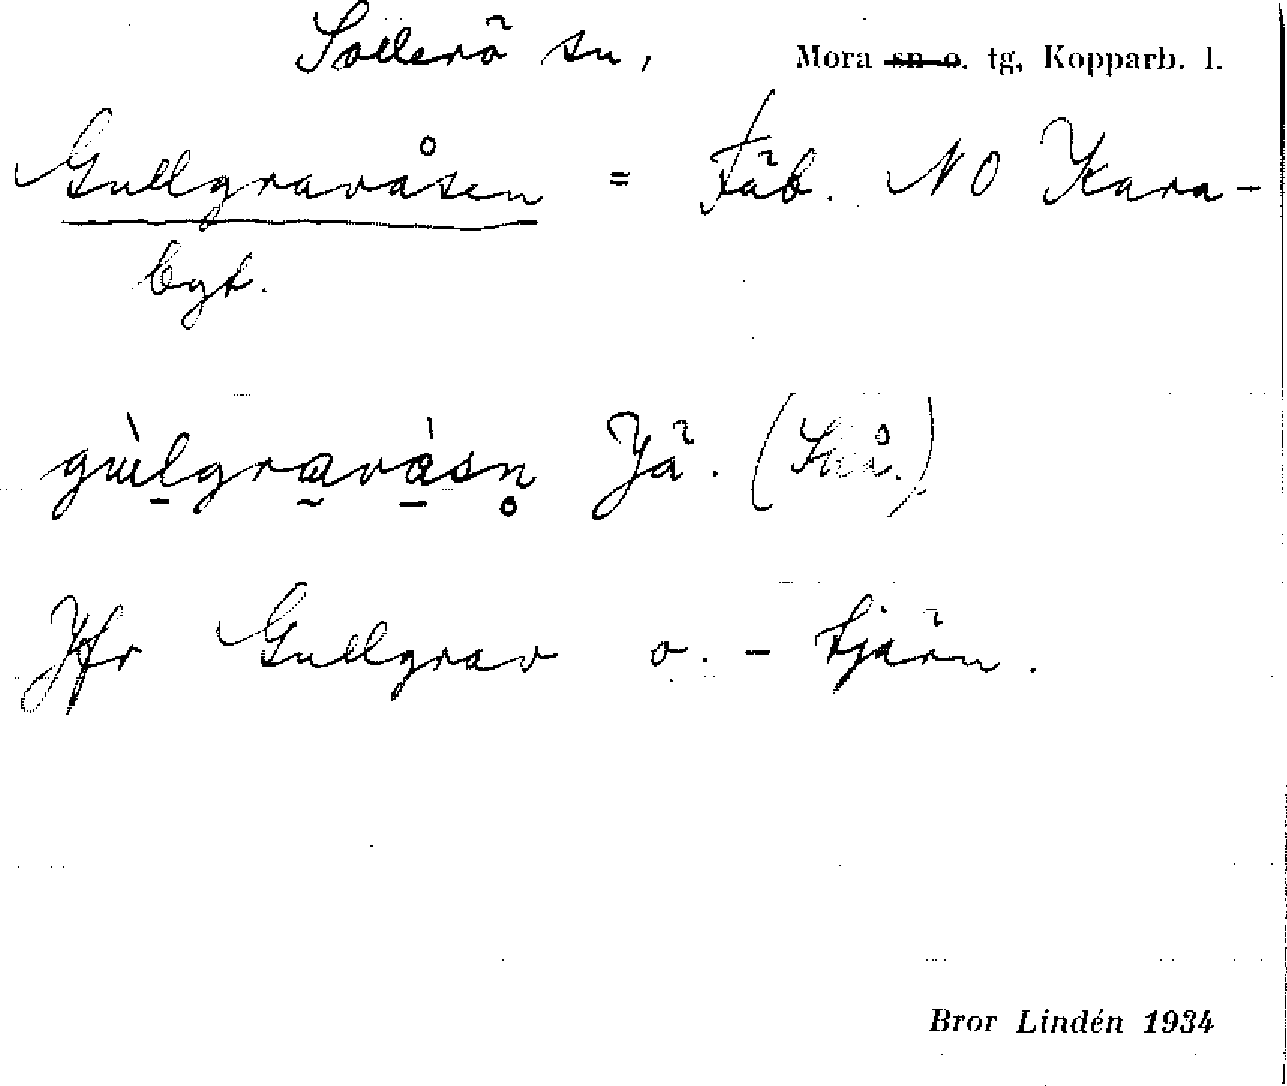 Sollerö sn, Mora sn o. tg, Kopparb. l.
Gullgravåsen = Fäb. NO Kara-
bgt.
gùlgravàsn Yä. (Små.)
Jfr Gullgrav o. - tjärn.
Bror Lindén 1934